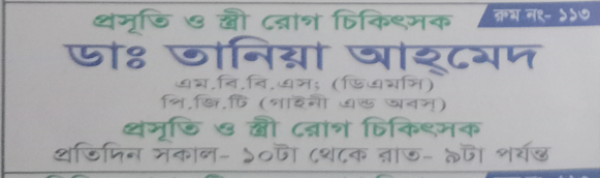 প্রসূতি ও স্ত্রী রোগ চিকিৎসক
রুম নং- ১১৩
ডাঃ তানিয়া আহ্মেদ
এম.বি.বি.এস; (ডিএমসি)
পি.জি.টি (গাইনী এন্ড অবস)
প্রসূতি ও স্ত্রী রোগ চিকিৎসক
প্রতিদিন সকাল- ১০টা থেকে রাত- ৯টা পর্যন্ত